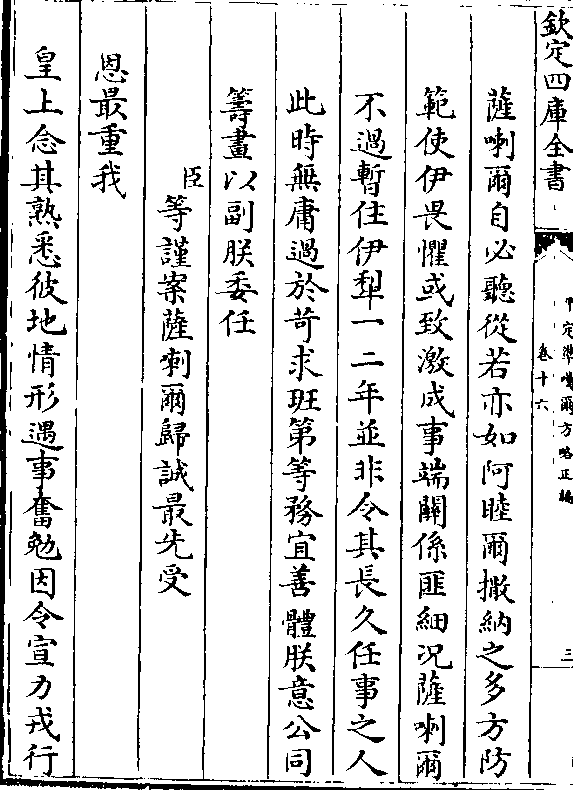 欽定四庫全書
平定準噶爾方略正編
卷十六
三
薩喇爾自必聽從若亦如阿睦爾撒納之多方防
範使伊畏懼或致激成事端關係匪細况薩喇爾
不過暫住伊犁一二年並非令其長久任事之人
此時無庸過於苛求班第等務宜善體朕意公同
籌畫以副朕委任
臣等謹案薩喇爾歸誠最先受
恩最重我
皇上念其熟悉彼地情形遇事奮勉因令宣力戎行